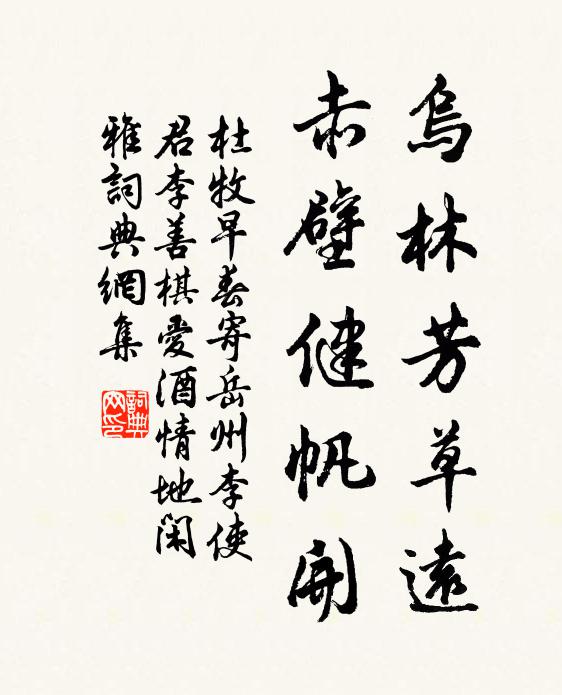 烏林芳草遠
赤壁健帆開
杜牧早春寄岳州李使
君李善棋愛酒情地閑
雅詞典網集
詞典网印